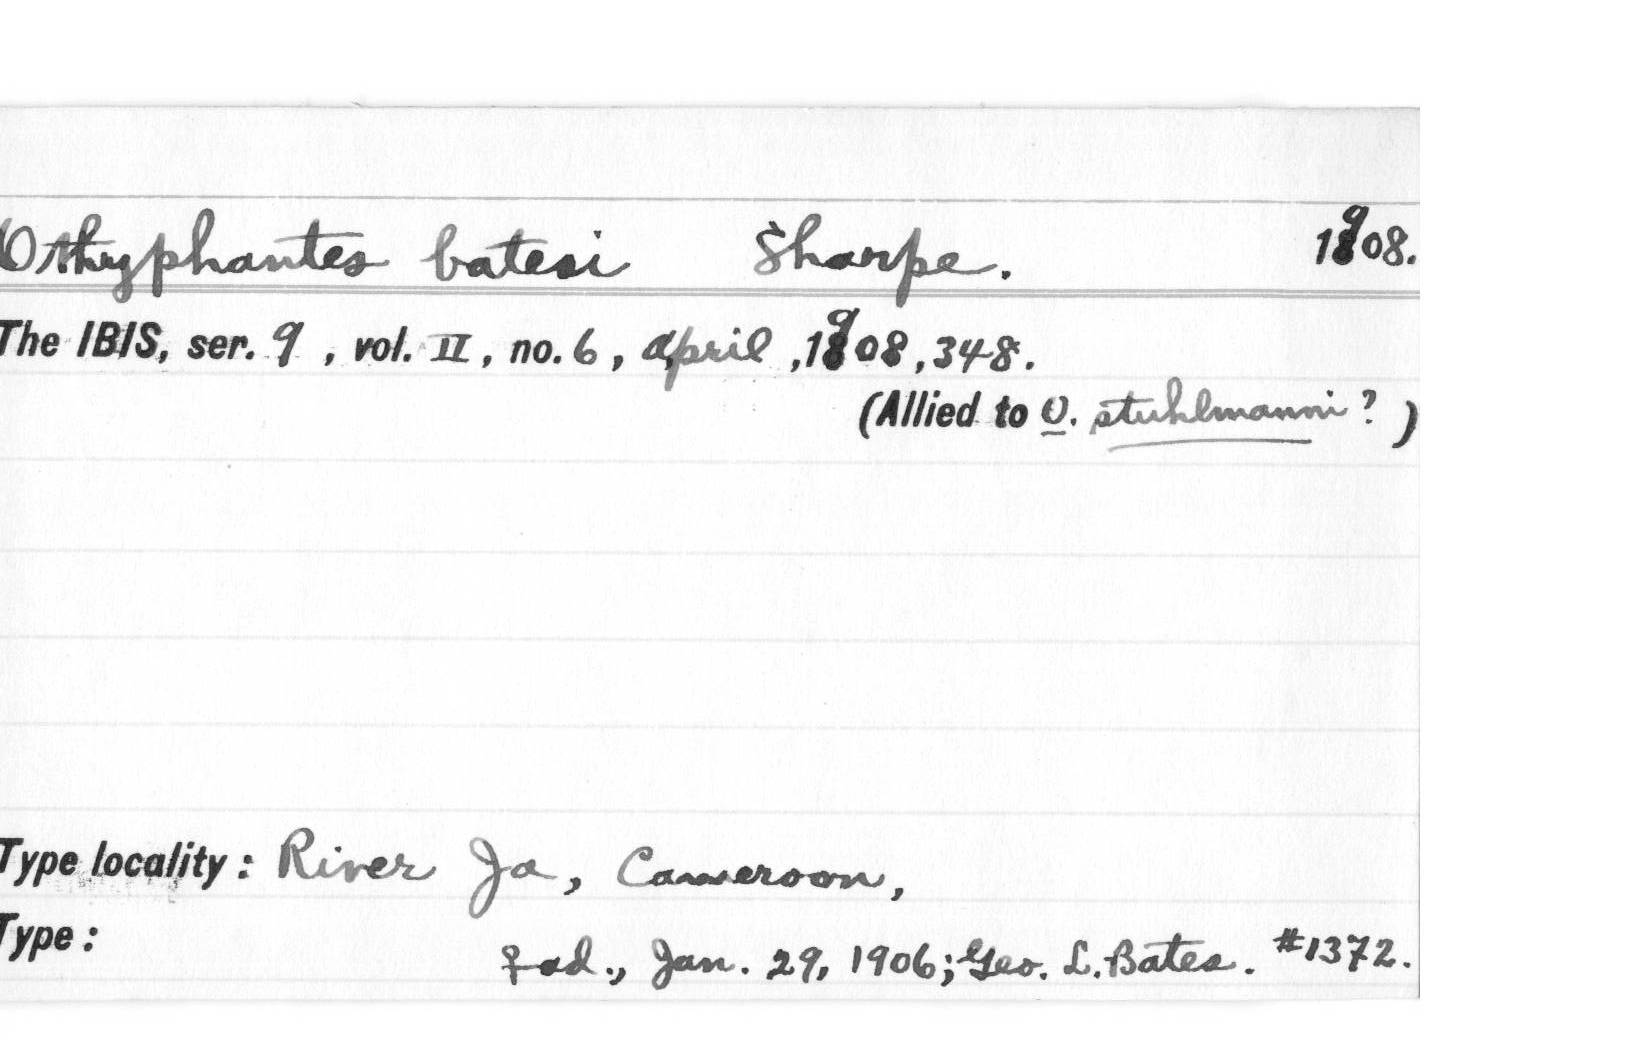 Othyphantes batesi Sharpe. 1908.
The IBIS, ser. 9, vol. II, no. 6, April, 1908, 348.
(Allied to O. stuhlmanni?)
Type locality: River Ja, Cameroon,
Type: ♀ ad., Jan. 29, 1906; Geo. L. Bates. #1372.